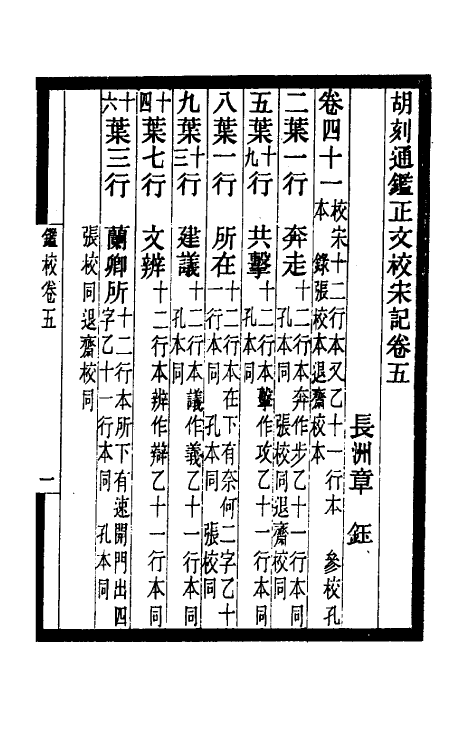 胡刻通鑑正文校宋記卷五
長洲章　鈺
卷四十一　校宋十二行本又乙十一行本　參校孔本　錄張校本退齋校本
二葉一行　奔走　十二行本奔作步乙十一行本同孔本同　張校同退齋校同
五葉十九行　共擊　十二行本擊作攻乙十一行本同孔本同
八葉一行　所在　十二行本在下有奈何二字乙十一行本同　孔本同　張校同
九葉十三行　建議　十二行本議作義乙十一行本同孔本同
十四葉七行　文辨　十二行本辨作辯乙十一行本同
十六葉三行　蘭卿所　十二行本所下有速開門出四字乙十一行本同　孔本同
張校同退齋校同
鑑校卷五
一